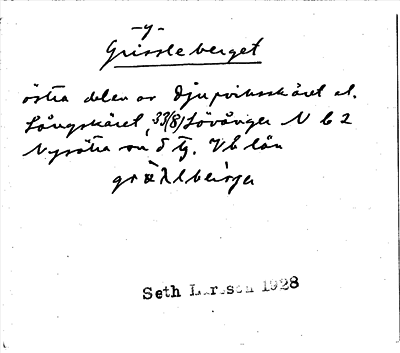 -y-
Grissleberget
östra delen av Djupviksskäret el.
Långskäret, 33(8) Lövånger N b 2
Nysätra sn S tg. Vb län
Seth Larsson 1928